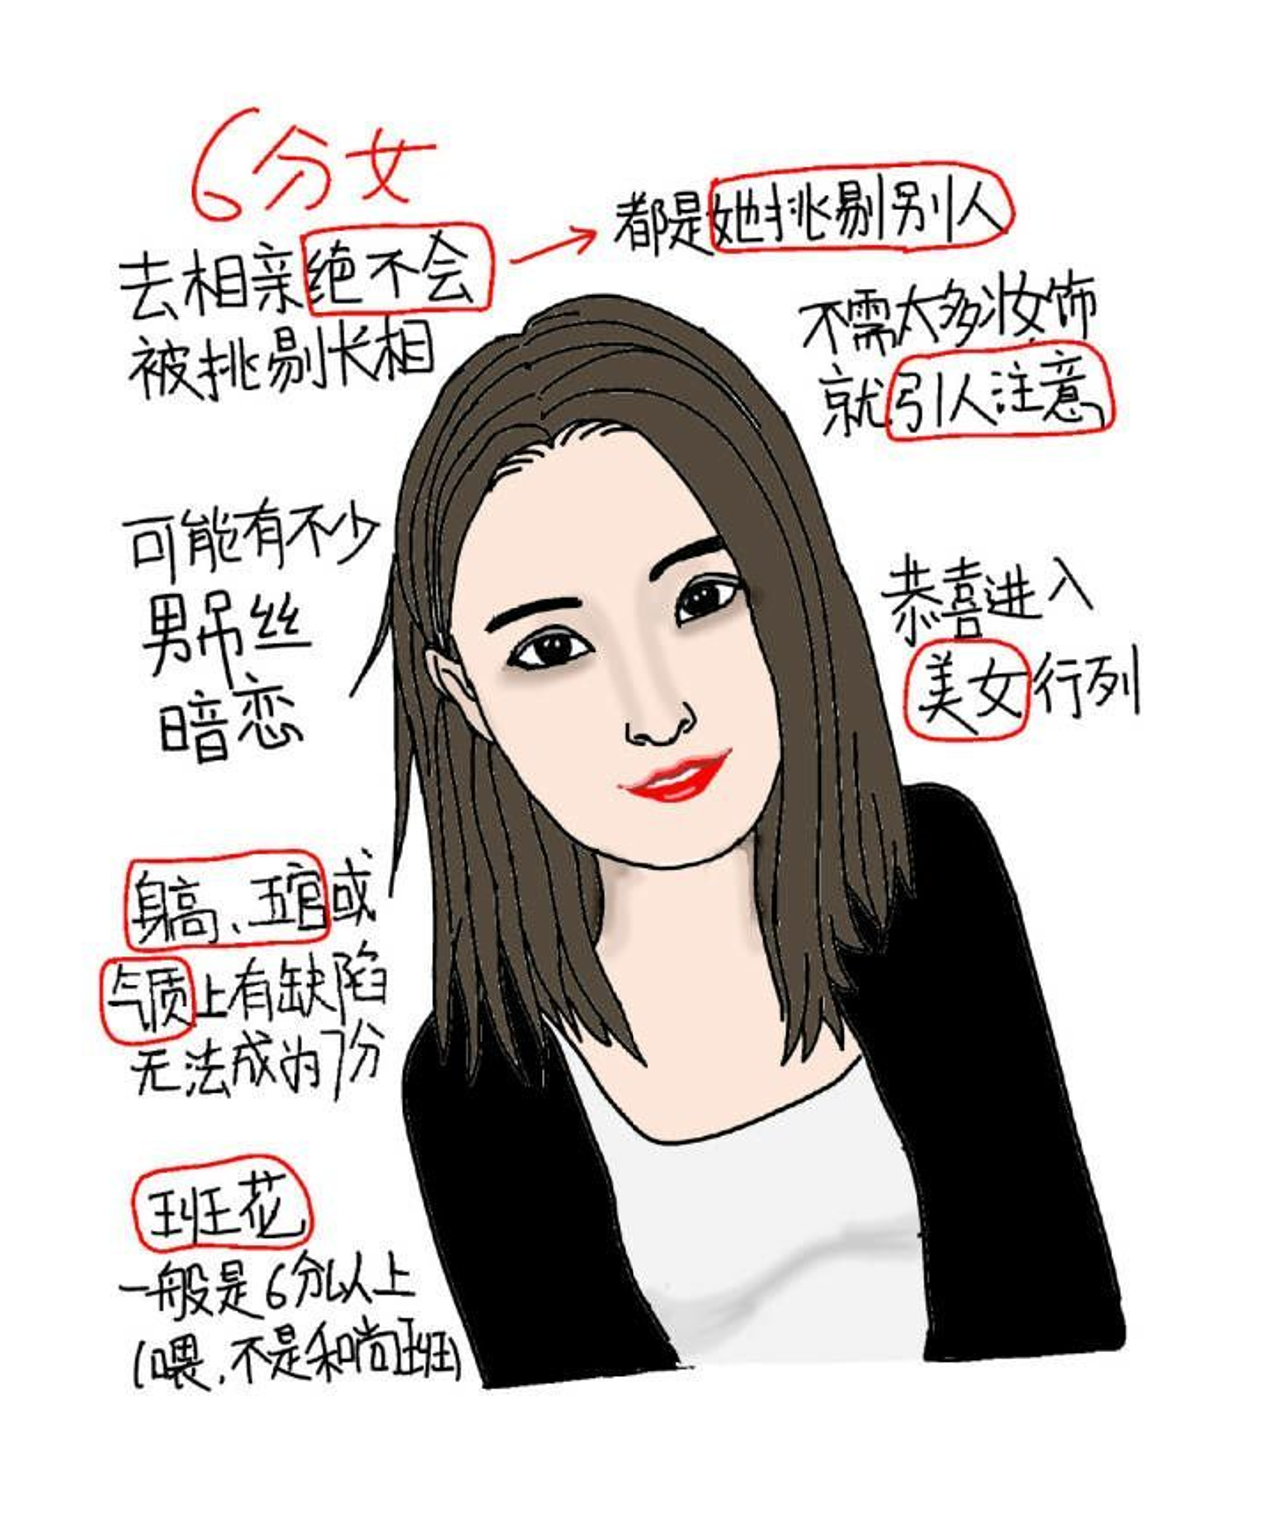 6分女
去相亲绝不会
被挑剔长相
都是她挑剔别人
不需太多妆饰
就引人注意
可能有不少
男吊丝
暗恋
恭喜进入
美女行列
身高、五官或
气质上有缺陷
无法成为7分
班花
一般是6分以上
(喂,不是和尚班)